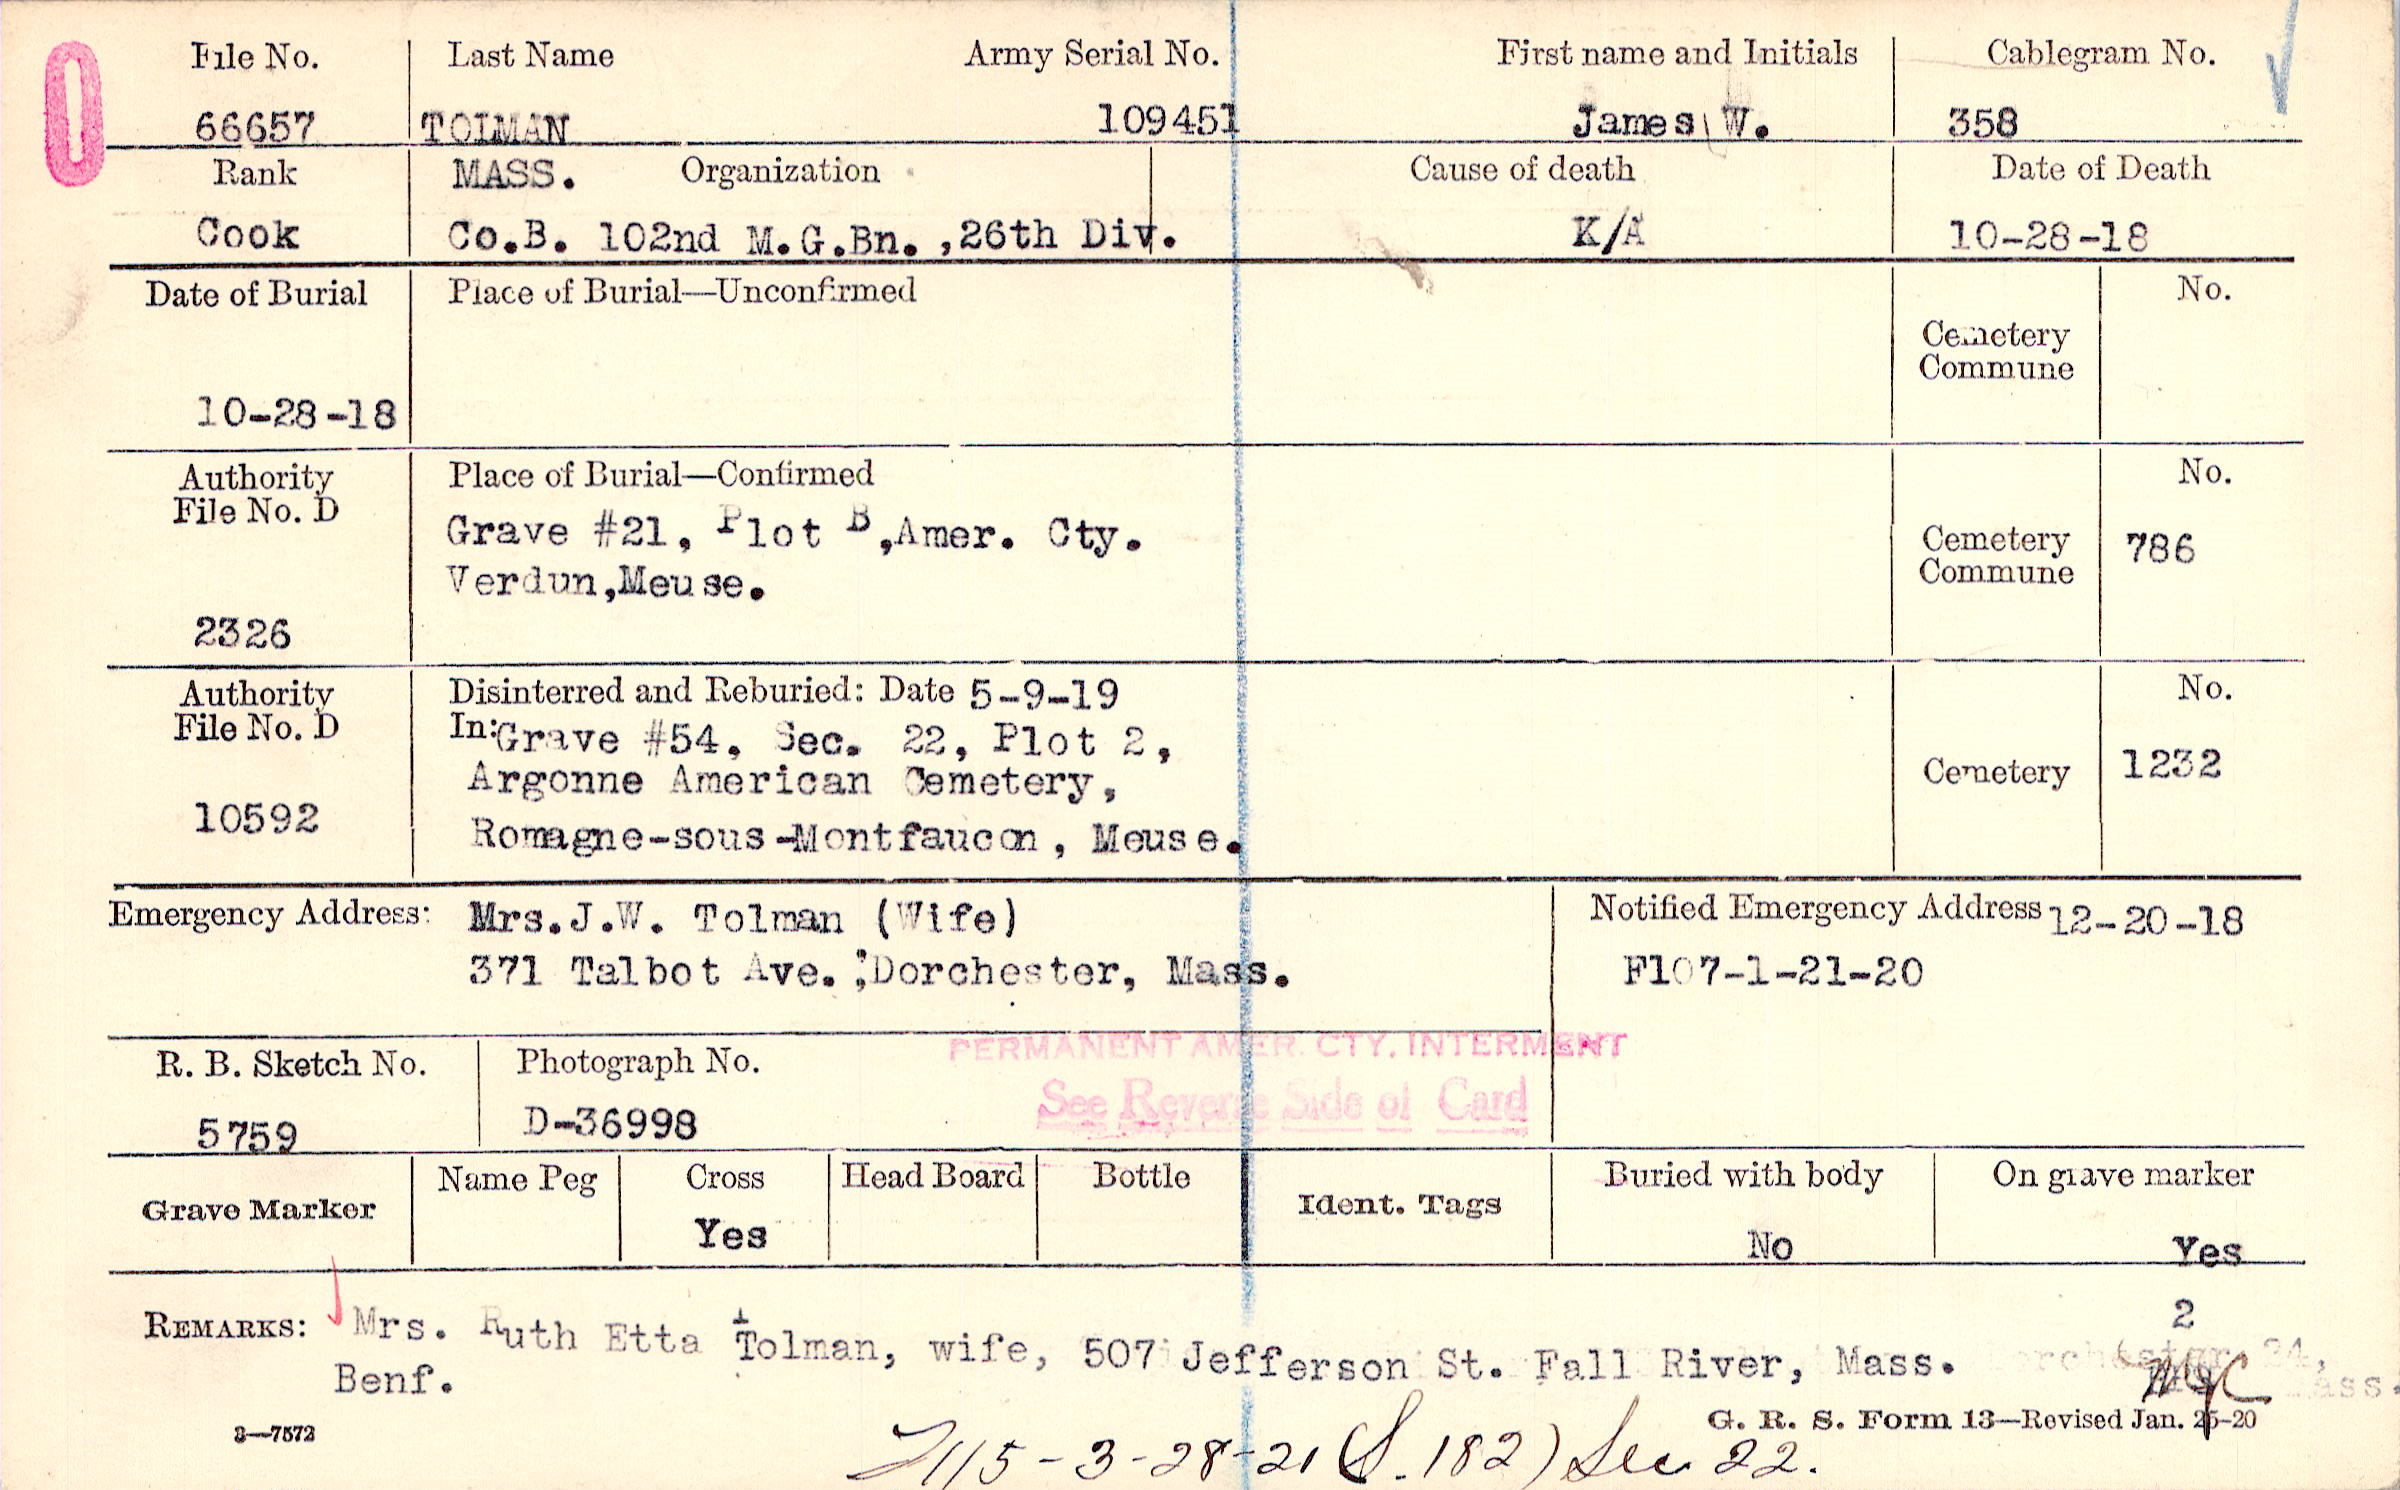 File No. Last Name Army Serial No. First name and Initials Cablegram No.
66657 TOLMAN 109451 James W. 358
Rank MASS. Organization Cause of death Date of Death
Cook Co.B. 102nd M.G.Bn.,26th Div. K/A 10-28-18
Date of Burial Place of Burial—Unconfirmed No.
Cemetery
Commune
10-28-18
Authority Place of Burial—Confirmed No.
File No. D
Grave #21, Plot B,Amer. Cty. Cemetery 786
Verdun,Meuse. Commune
2326
Authority Disinterred and Reburied: Date 5-9-19 No.
File No. D In:Grave #54, Sec. 22, Plot 2,
Argonne American Cemetery, Cemetery 1232
10592 Romagne-sous-Montfaucon, Meuse.
Emergency Address: Mrs.J.W. Tolman (Wife) Notified Emergency Address 12-20-18
371 Talbot Ave. ;Dorchester, Mass. F107-1-21-20
PERMANENT AMER. CTY. INTERMENT
R. B. Sketch No. Photograph No. See Reverse Side of Card
5759 D-36998
Grave Marker Name Peg Cross Head Board Bottle Ident. Tags Buried with body On grave marker
Yes No Yes
2
REMARKS: Mrs. Ruth Etta Tolman, wife, 507 Jefferson St. Fall River, Mass.
Benf.
3—7572 G. R. S. Form 13—Revised Jan. 25-20
115-3-28-21 (S. 182) Sec 22.